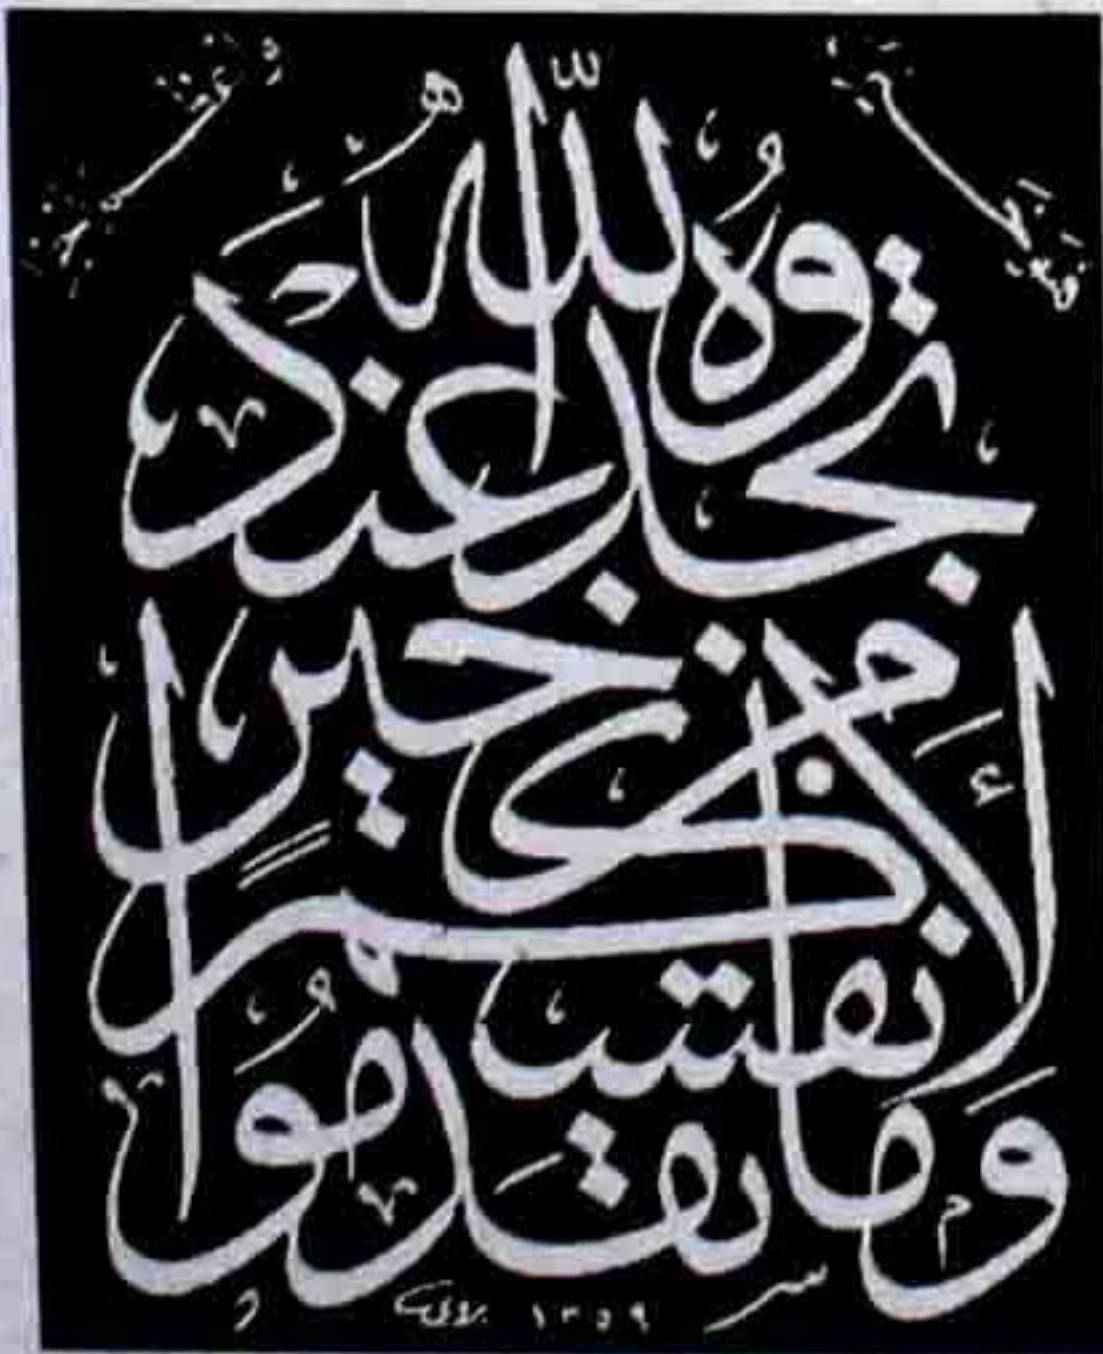 وَمَا تُقَدِّمُوا
لِأَنفُسِكُم مِّنْ خَيْرٍ
تَجِدُوهُ عِندَ اللَّهِ
١٣٥٩